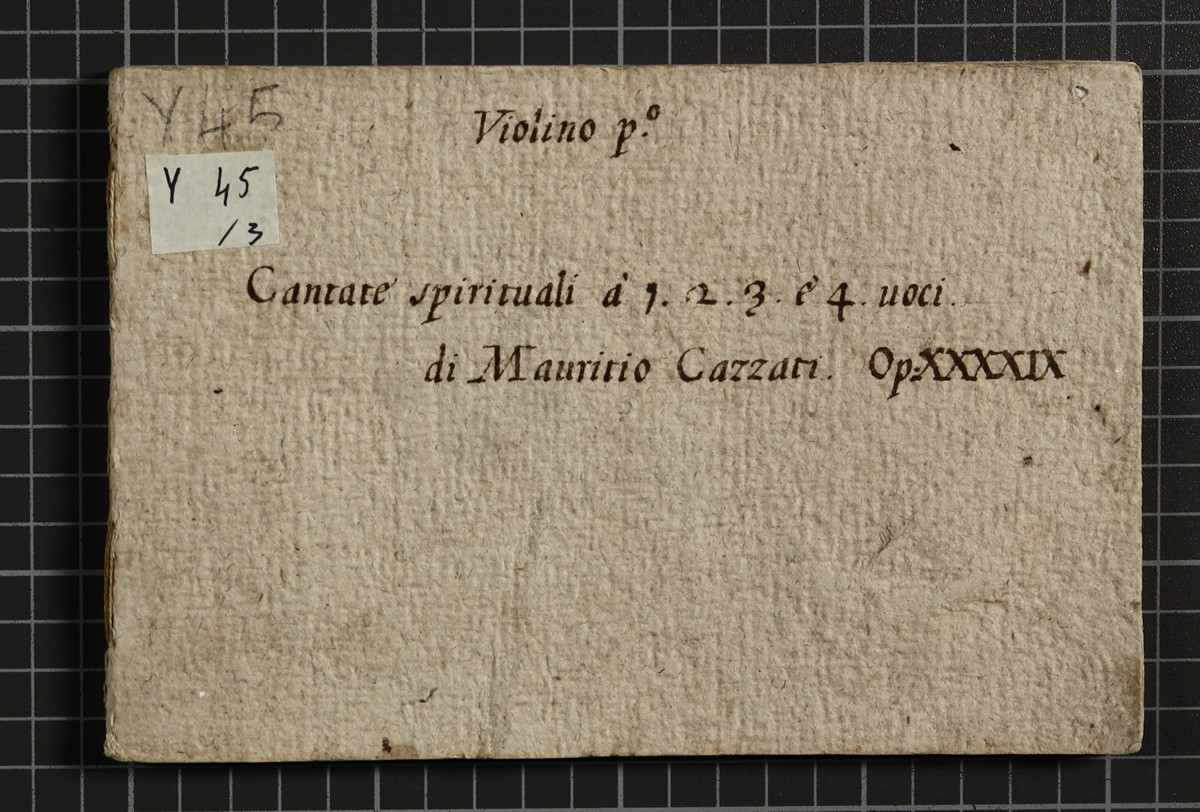 Y 45
Violino p.º
Y 45
/3
Cantate spirituali à 1. 2. 3. è 4. uoci.
di Mauritio Cazzati. Op:XXXXIX